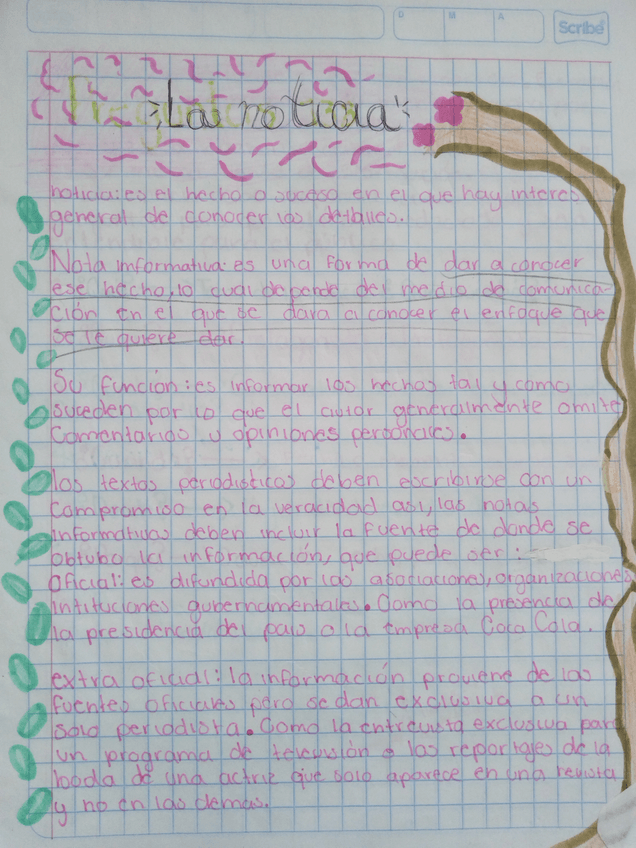 D M A
Scribe
La noticia
noticia: es el hecho o suceso en el que hay interes
general de conocer los detalles.
Nota informativa: es una forma de dar a conocer
ese hecho, lo cual depende del medio de comunica-
ción en el que se dara a conocer el enfoque que
se le quiere dar.
Su función: es informar los hechos tal y como
suceden por lo que el autor generalmente omite
comentarios y opiniones personales.
los textos periodisticos deben escribirse con un
compromiso en la veracidad asi, las notas
informativas deben incluir la fuente de donde se
obtubo la información, que puede ser:
Oficial: es difundida por las asociaciones, organizaciones
intituciones gubernamentales. Como la presencia de
la presidencia del pais o la empresa Coca Cola.
extra oficial: la información proviene de las
fuentes oficiales pero se dan exclusiva a un
solo periodista. Como la entrevista exclusiva para
un programa de televisión o los reportajes de la
boda de una actriz que solo aparece en una revista
y no en las demas.